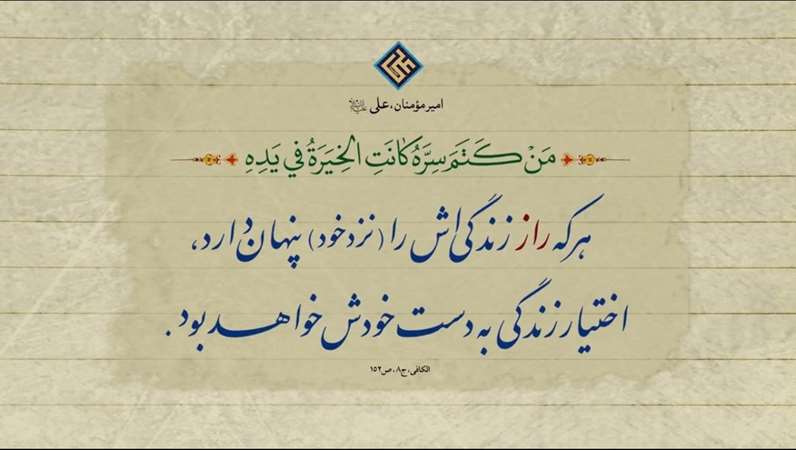 علی
امیرمؤمنان، علی علیه‌السلام
مَنْ كَتَمَ سِرَّهُ كَانَتِ الْخِيَرَةُ فِي يَدِهِ
هرکه راز زندگی‌اش را (نزد خود) پنهان دارد،
اختیار زندگی به دست خودش خواهد بود.
الکافی، ج۸، ص۱۵۲